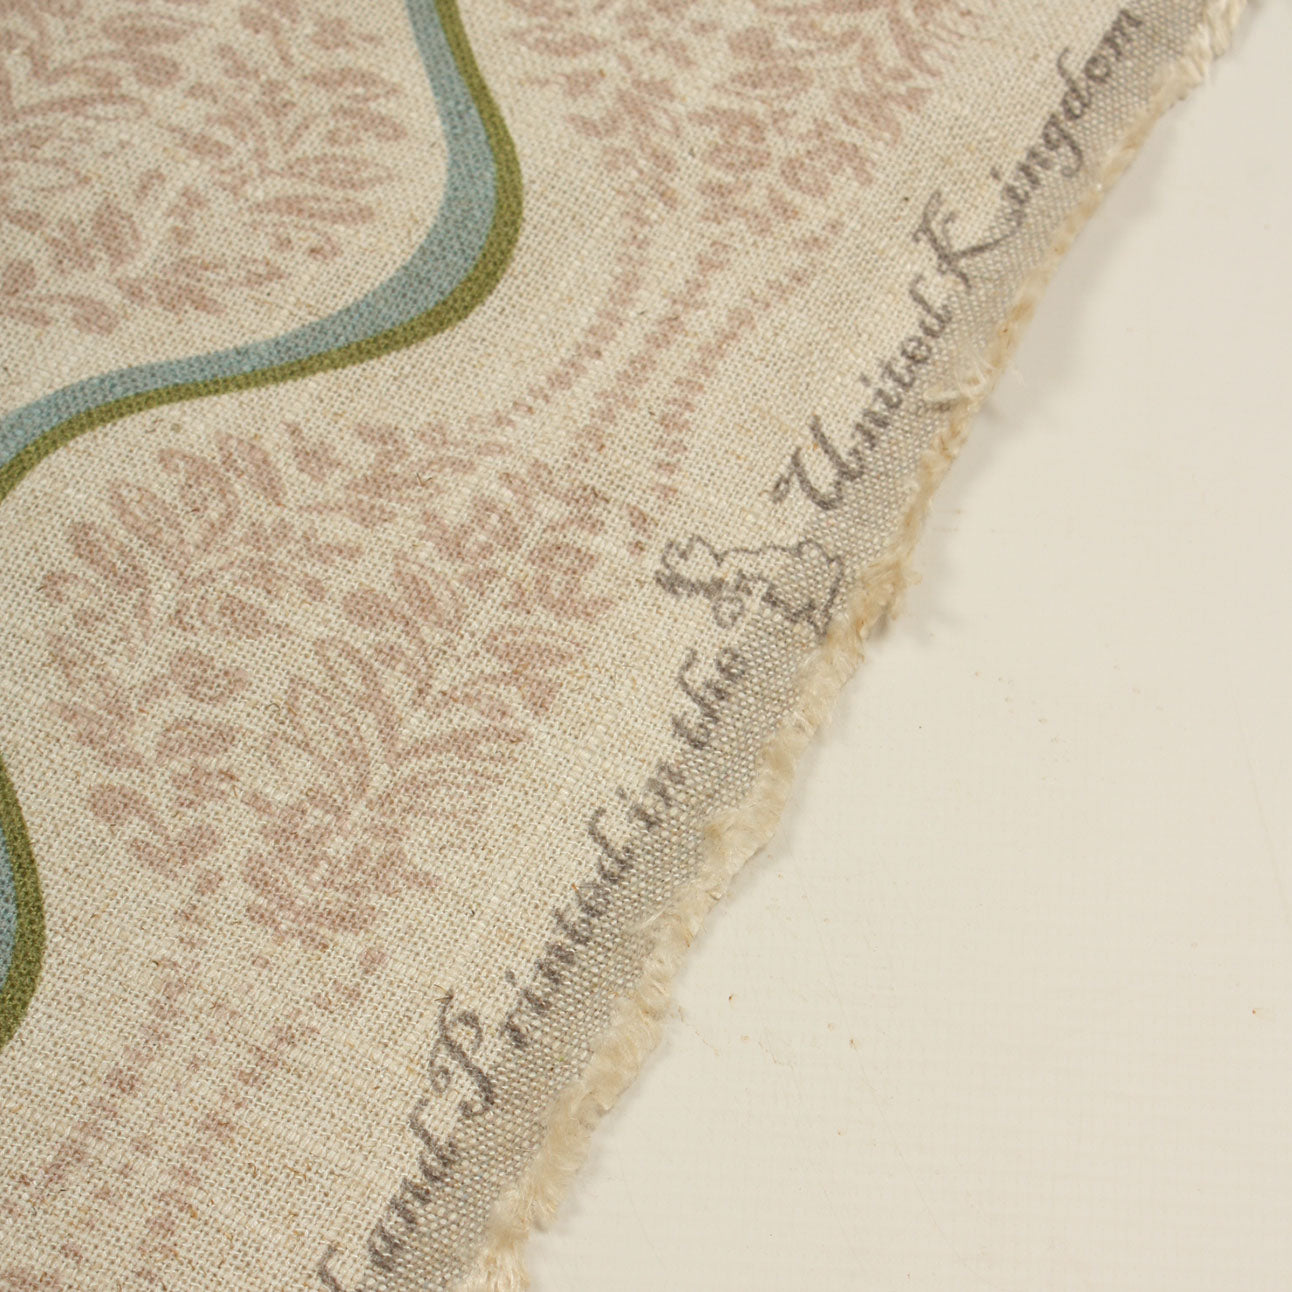 Hand Printed in the United Kingdom